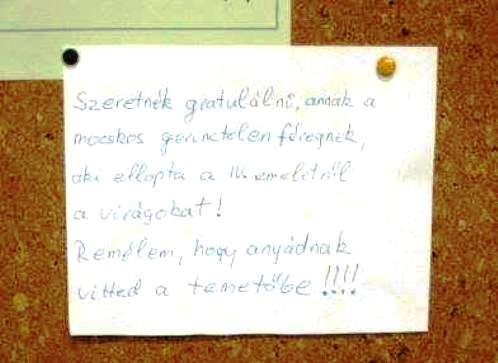 Szeretnék gratulálni, annak a
mocskos gerinctelen féregnek,
aki ellopta a IV. emeletről
a virágokat!
Remélem, hogy anyádnak
vitted a temetőbe !!!!